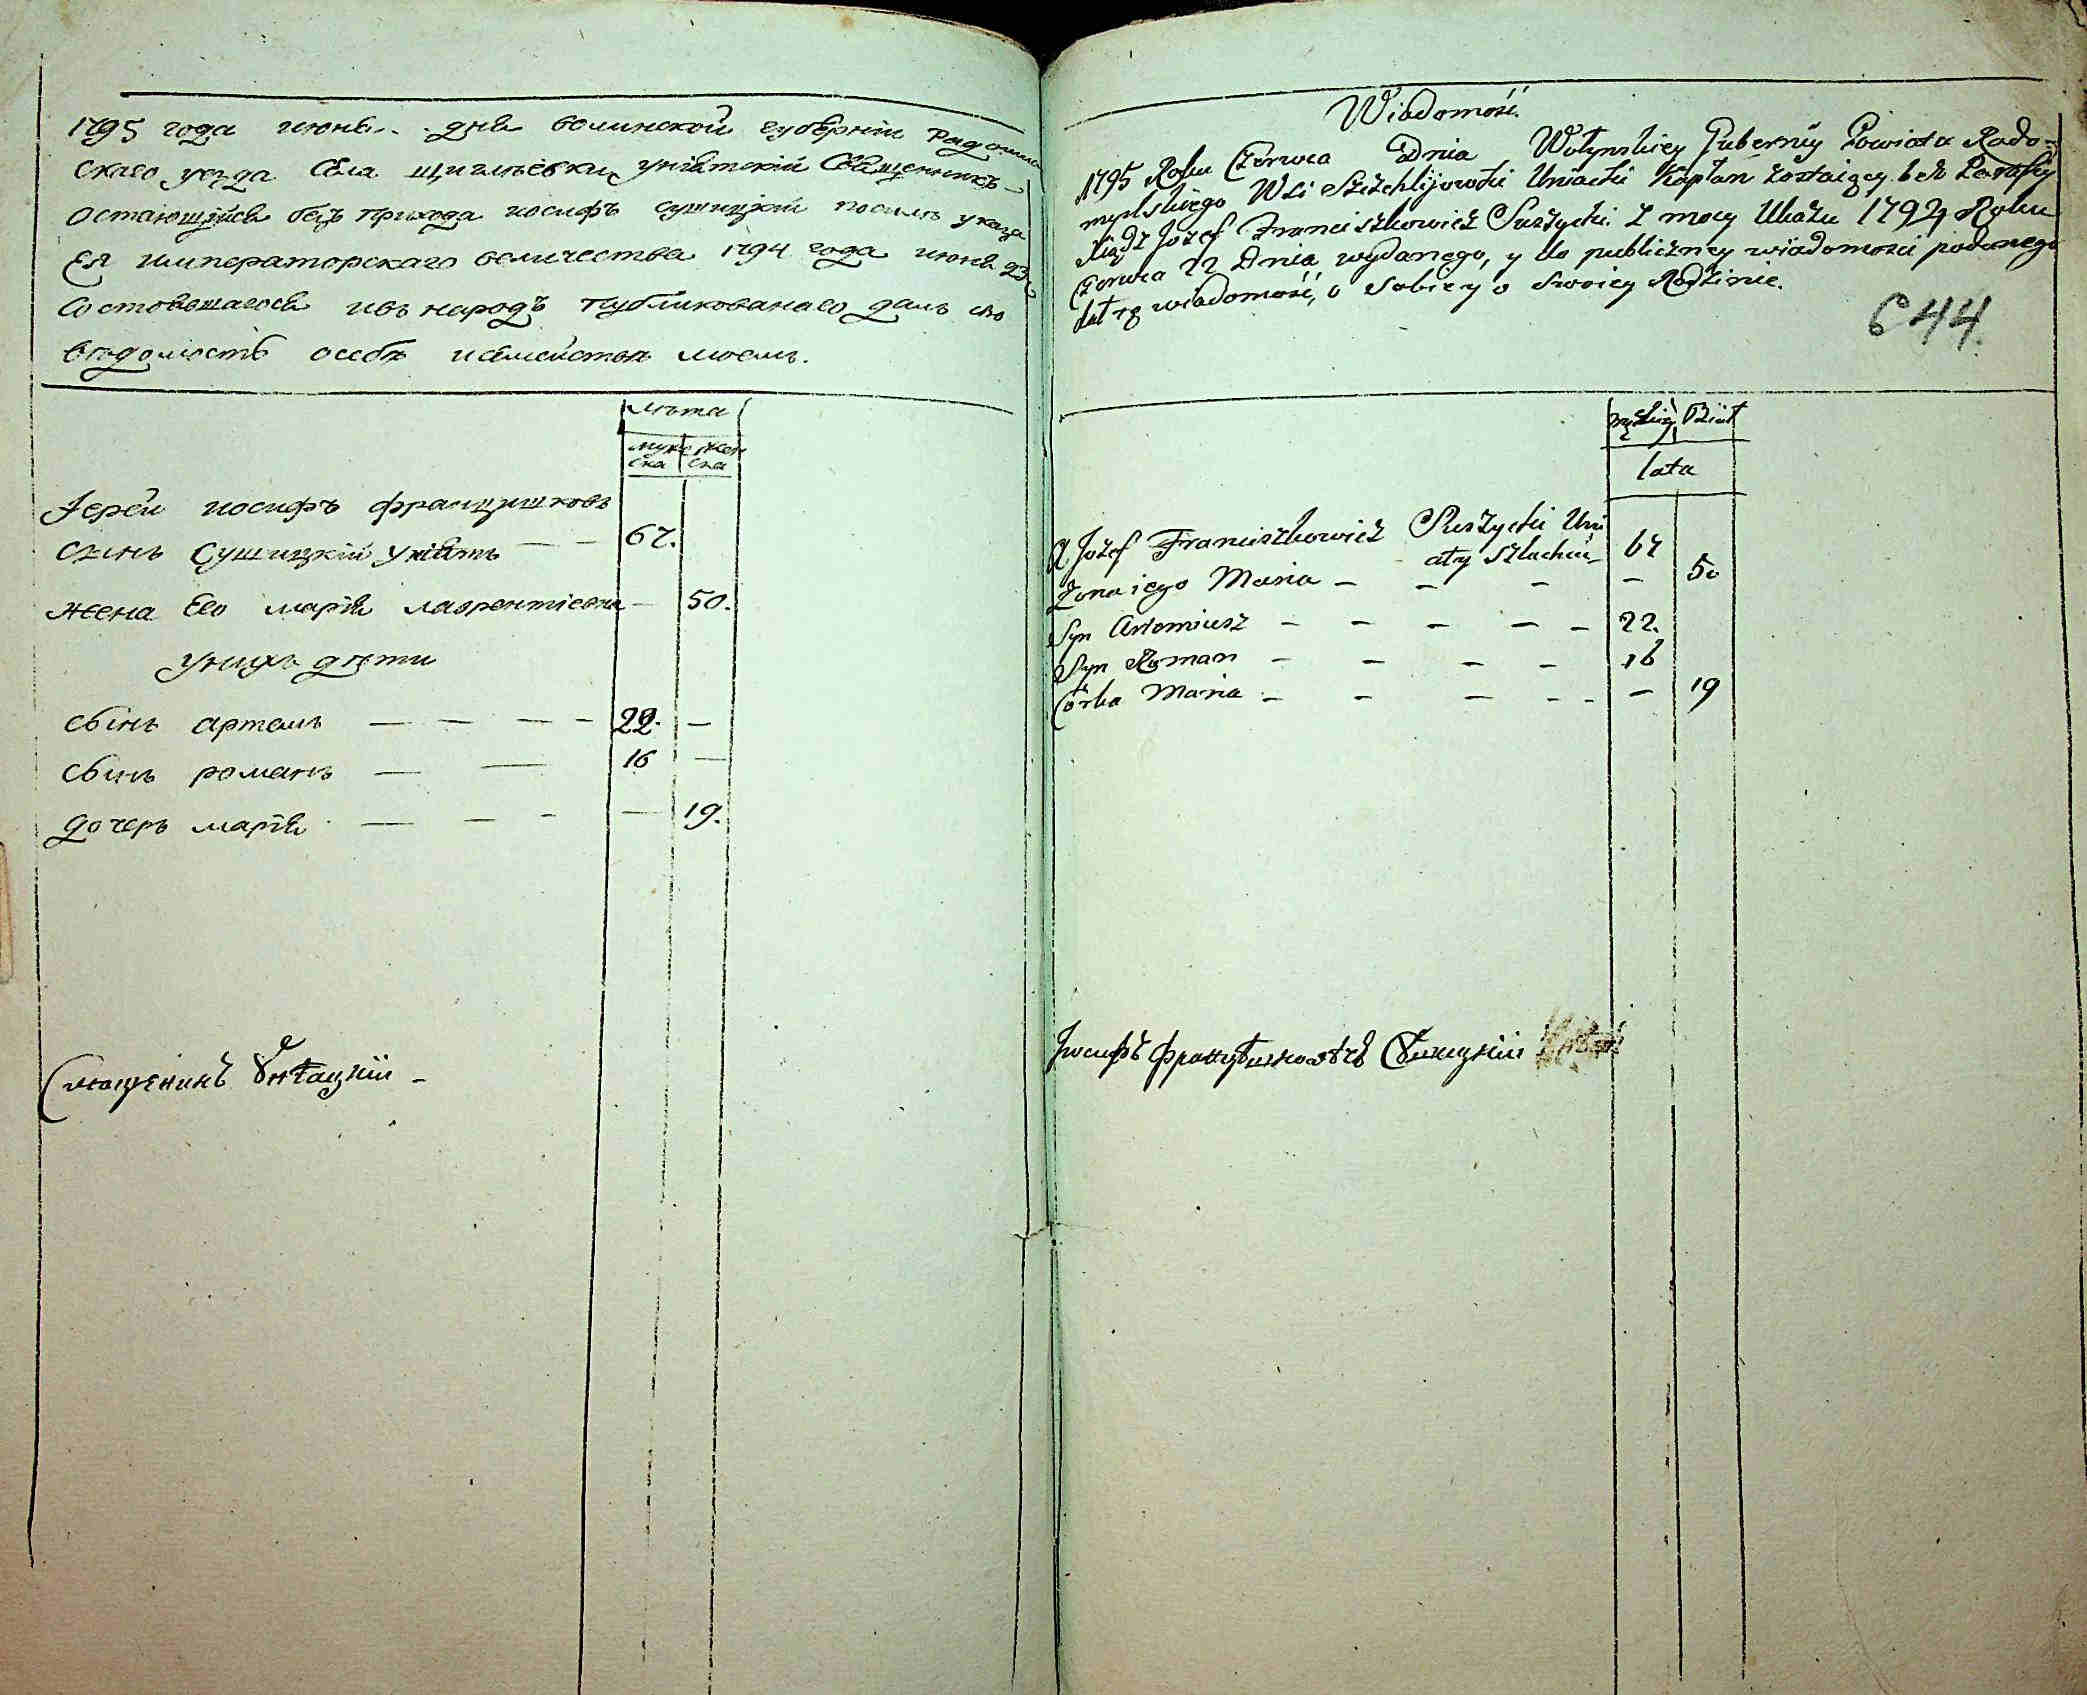 1795 года июня .. дня волинской губернїи Радомы
скаго уезда села щигліевки унїятскїй священникъ
остающїйся безъ прихода иосифъ сушицкїй посилѣ указа
Ея императорскаго величества 1794 года июня 23
состоявшагося ивъ народъ публикованаго далъ сїю
ведомость осебѣ исемействѣ моемъ.
лѣта
мужеска женска
Іерей иосифъ францишковъ
сынъ Сушицкїй унїятъ — — 67.
жена Его марїя лаврентїевна — 50.
унихъ дѣти
сынъ артемъ — — — — 22. —
сынъ романъ — — 16 —
дочерь марїя — — — — 19.
Священикъ Унѣацкїй —
Wiadomość.
1795 Roku Czerwca Dnia Wołynskiey Guberniy Powiata Rado-
myslskiego Wsi Szczehlijowki Uniacki Kapłan zostaiący bez Parafiy
Xiądz Jozef Franciszkowicz Suszycki z mocy Ukazu 1794 Roku
Czerwca 22 Dnia wydanego, y do publiczney wiadomosci podanego
dał tę wiadomość, o Sobie y o swoiey Rodzinie.
644.
męski Biał
lata
X Jozef Franciszkowicz Suszycki Uni
aty Szlachci_ 67
Żona iego Maria — — — — 50
Syn Artomiusz — — — — — 22.
Syn Roman — — — — 16
Córka Maria — — — — — — 19
Іосифъ Францѣшковѣчъ Сушицкїй